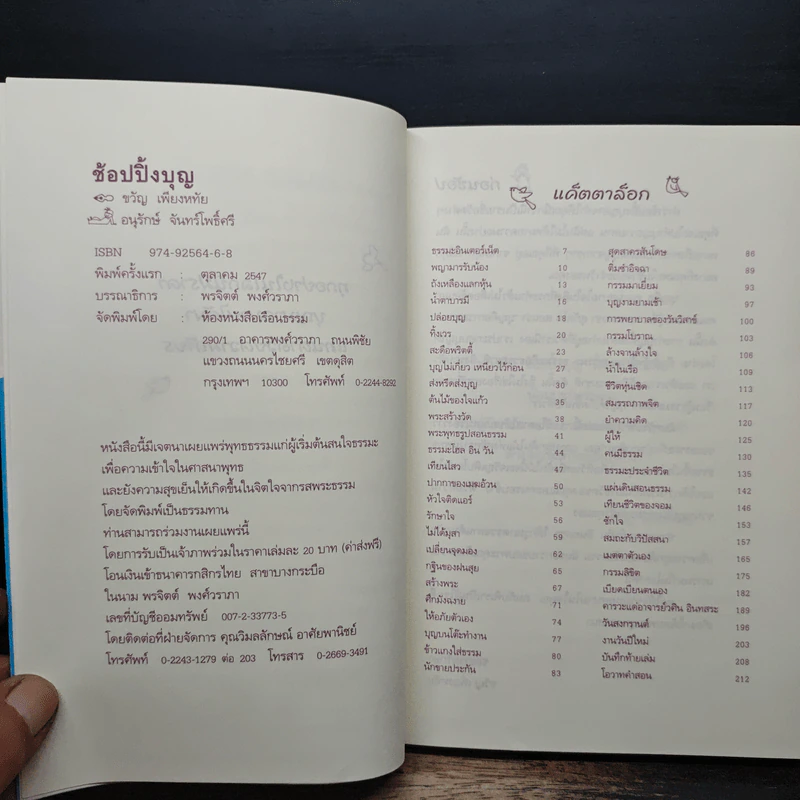 ช้อปปิ้งบุญ
ขวัญ เพียงหทัย
อนุรักษ์ จันทร์โพธิ์ศรี
ISBN 974-92564-6-8
พิมพ์ครั้งแรก : ตุลาคม 2547
บรรณาธิการ : พรจิตต์ พงศ์วราภา
จัดพิมพ์โดย : ห้องหนังสือเรือนธรรม
290/1 อาคารพงศ์วราภา ถนนพิชัย
แขวงถนนนครไชยศรี เขตดุสิต
กรุงเทพฯ 10300 โทรศัพท์ 0-2244-8292
หนังสือนี้มีเจตนาเผยแพร่พุทธธรรมแก่ผู้เริ่มต้นสนใจธรรมะ
เพื่อความเข้าใจในศาสนาพุทธ
และยังความสุขเย็นให้เกิดขึ้นในจิตใจจากรสพระธรรม
โดยจัดพิมพ์เป็นธรรมทาน
ท่านสามารถร่วมงานเผยแพร่นี้
โดยการรับเป็นเจ้าภาพร่วมในราคาเล่มละ 20 บาท (ค่าส่งฟรี)
โอนเงินเข้าธนาคารกสิกรไทย สาขาบางกระบือ
ในนาม พรจิตต์ พงศ์วราภา
เลขที่บัญชีออมทรัพย์ 007-2-33773-5
โดยติดต่อที่ฝ่ายจัดการ คุณวิมลลักษณ์ อาศัยพานิชย์
โทรศัพท์ 0-2243-1279 ต่อ 203 โทรสาร 0-2669-3491
แค็ตตาล็อก
ธรรมะอินเตอร์เน็ต 7
พญามารรับน้อง 10
ถังเหลืองแลกหุ้น 13
น้ำตาบารมี 16
ปล่อยบุญ 18
ทิ้งเวร 20
สะดือพริตตี้ 23
บุญไม่เกี่ยว เหนียวไว้ก่อน 27
ส่งหรีดส่งบุญ 30
ต้นไม้ของใจแก้ว 35
พระสร้างวัด 38
พระพุทธรูปสอนธรรม 41
ธรรมะโฮล อิน วัน 44
เทียนโสว 47
ปากกาของเมฆอ้วน 50
หัวใจติดแอร์ 53
รักษาใจ 56
ไม่ได้มุสา 59
เปลี่ยนจุดมอง 62
กฐินของฝนสุย 65
สร้างพระ 67
ศึกมังฉงาย 71
ให้อภัยตัวเอง 74
บุญบนโต๊ะทำงาน 77
ข้าวแกงใส่ธรรม 80
นักขายประกัน 83
สุดสาครสันโดษ 86
ติ่มซำอิจฉา 89
กรรมมาเยี่ยม 93
บุญงามยามเช้า 97
การพยาบาลของวันวิสาข์ 100
กรรมโบราณ 103
ล้างจานล้างใจ 106
น้ำในเรือ 109
ชีวิตหุ่นเชิด 113
สมรรถภาพจิต 117
ยำความคิด 120
ผู้ให้ 125
คนมีธรรม 130
ธรรมะประจำชีวิต 135
แผ่นดินสอนธรรม 142
เทียนชีวิตของจอม 147
ซักใจ 153
สมถะกับวิปัสสนา 157
เมตตาตัวเอง 165
กรรมลิขิต 175
เบียดเบียนตนเอง 182
คารวะแด่อาจารย์วศิน อินทสระ 189
วันสงกรานต์ 196
งานวันปีใหม่ 203
บันทึกท้ายเล่ม 208
โอวาทคำสอน 212